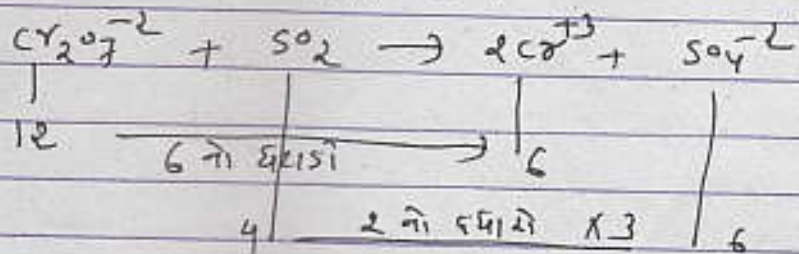 Cr₂O₇⁻² + SO₂ → 2Cr⁺³ + SO₄⁻²
12 6 નો ઘટાડો 6
4 2 નો વધારો ×3 6